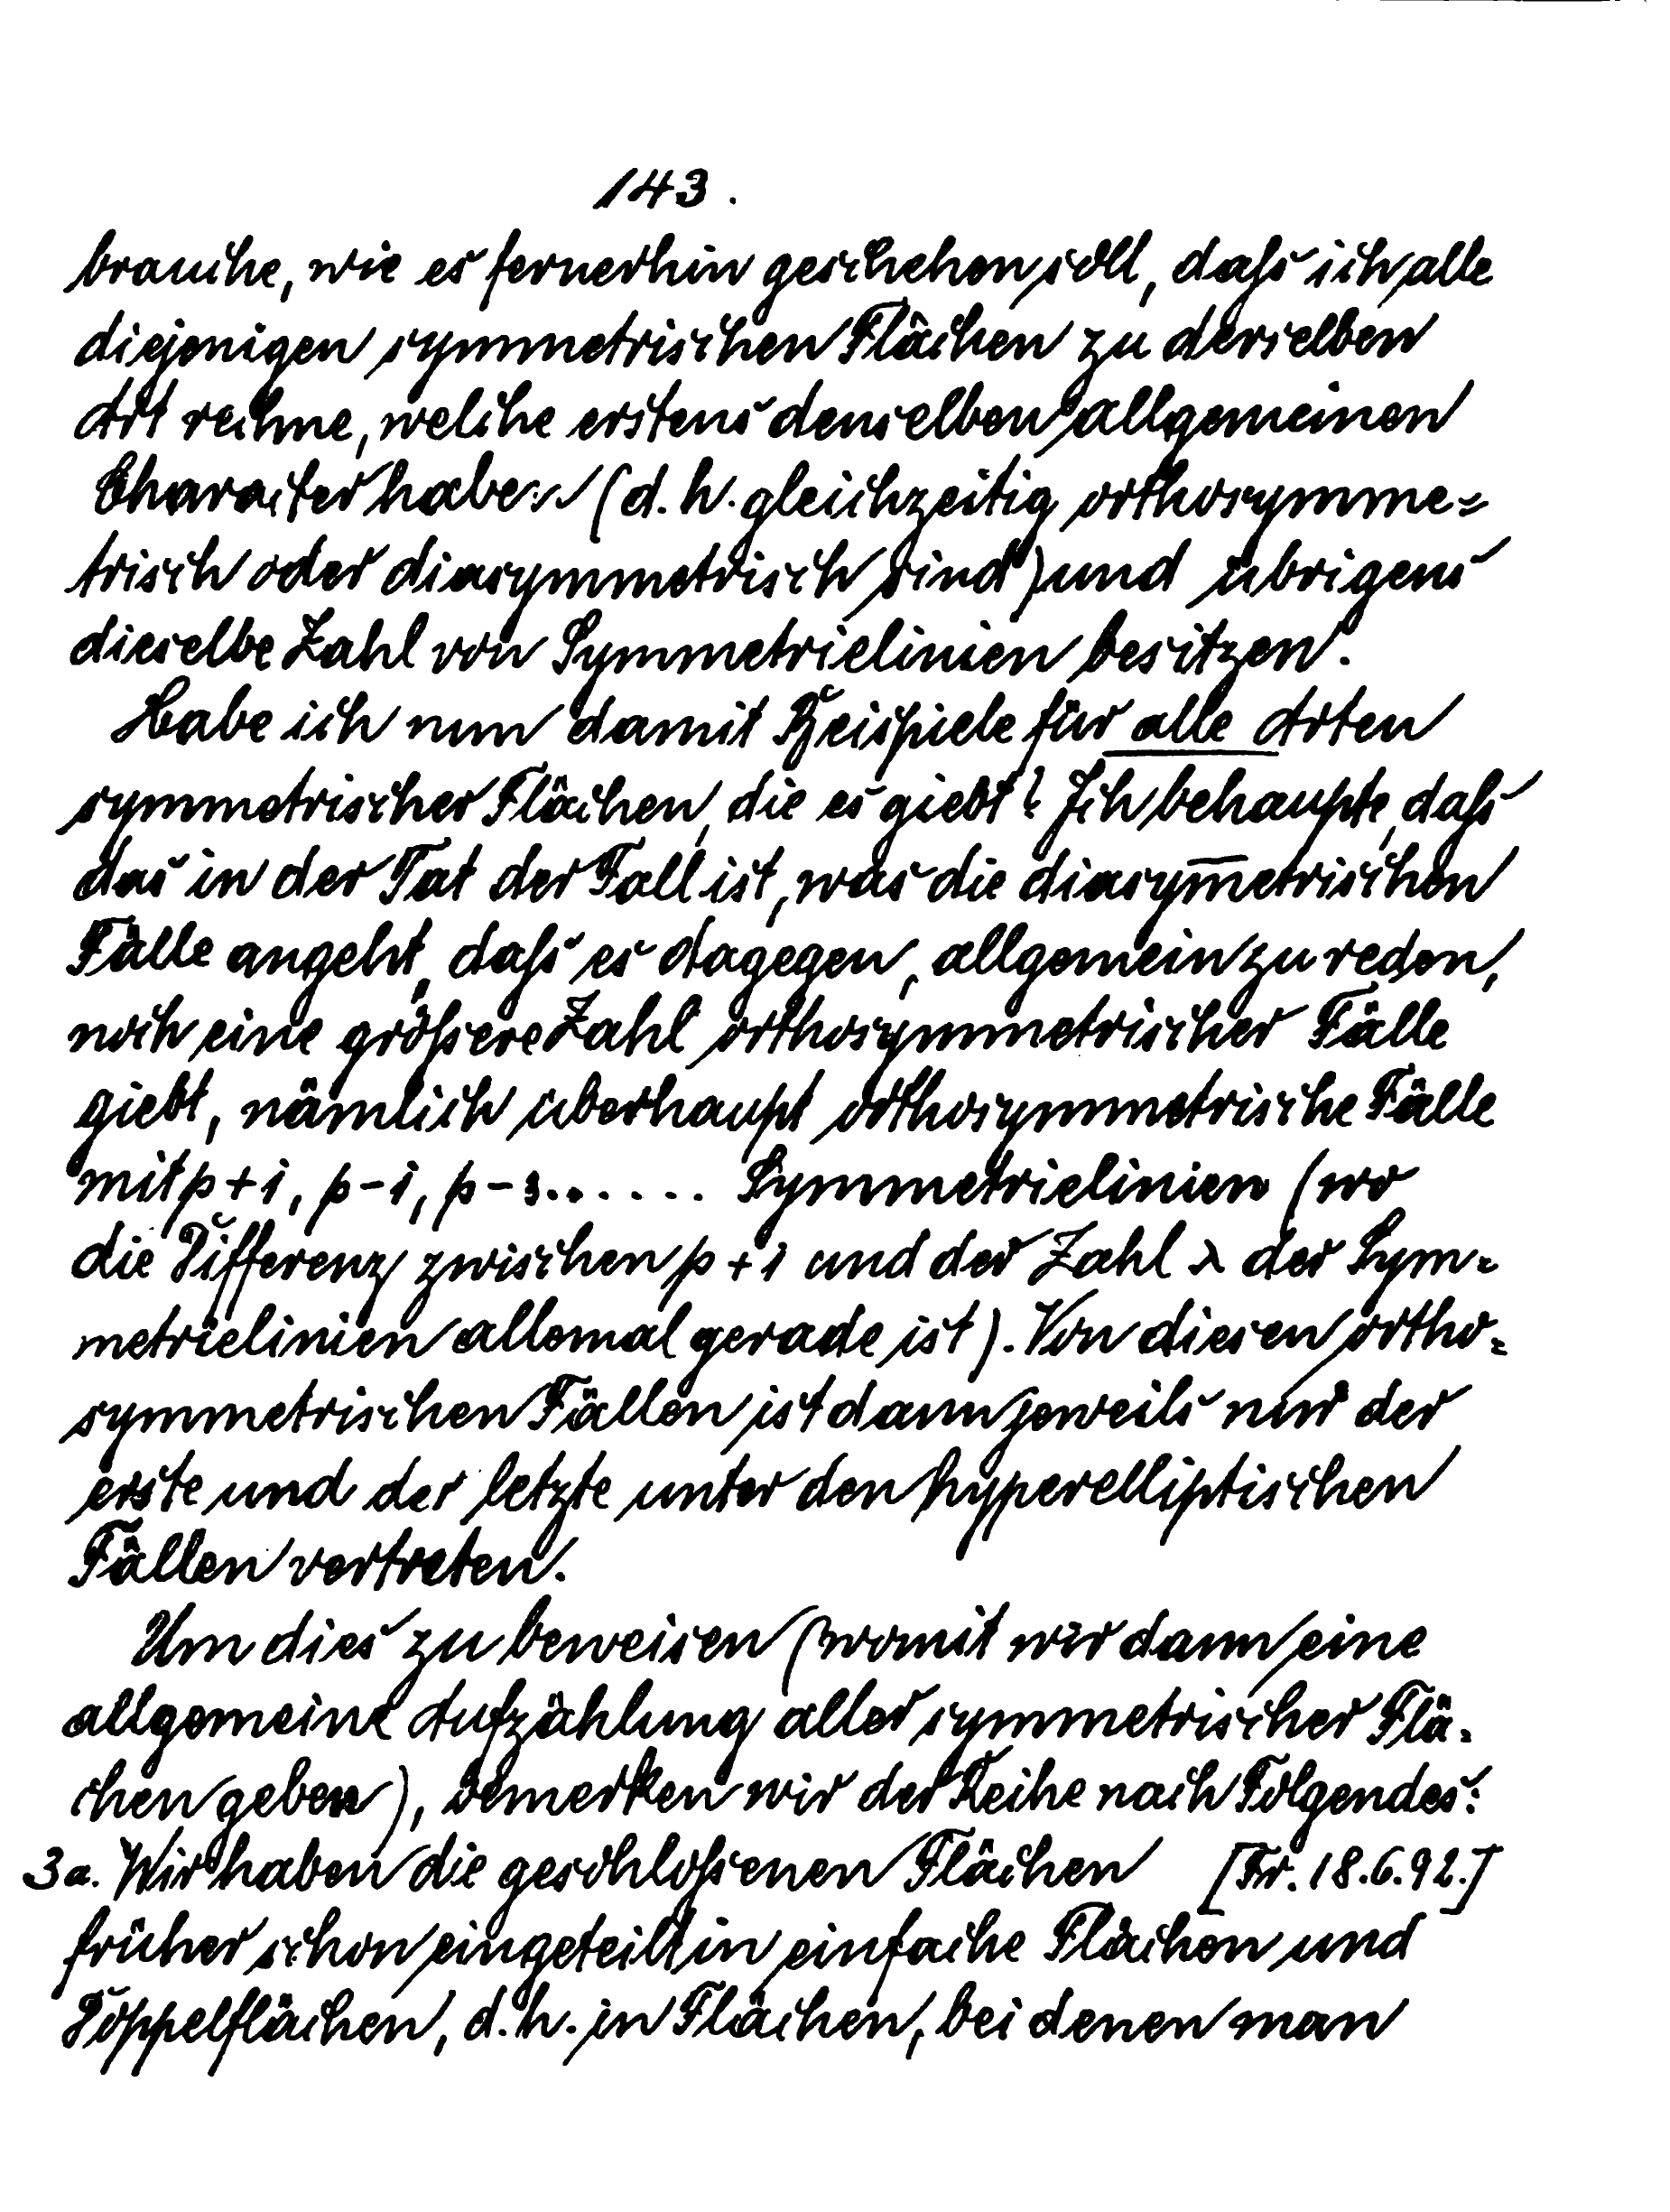 143.
brauche, wie es fernerhin geschehen soll, daſs ich alle
diejenigen symmetrischen Flächen zu derselben
Art rechne, welche erstens denselben allgemeinen
Character haben (d. h. gleichzeitig orthosymme=
trisch oder diasymmetrisch sind) und übrigens
dieselbe Zahl von Symmetrielinien besitzen.
Habe ich nun damit Beispiele für alle Arten
symmetrischer Flächen, die es giebt? Ich behaupte, daſs
das in der Tat der Fall ist, was die diasym̅etrischen
Fälle angeht, daſs es dagegen, allgemein zu reden,
noch eine gröſsere Zahl orthosymmetrischer Fälle
giebt, nämlich überhaupt orthosymmetrische Fälle
mit p+1, p-1, p-3...... Symmetrielinien (wo
die Differenz zwischen p+1 und der Zahl λ der Sym=
metrielinien allemal gerade ist). Von diesen ortho=
symmetrischen Fällen ist dann jeweils nur der
erste und der letzte unter den hyperelliptischen
Fällen vertreten.
Um dies zu beweisen (womit wir dann eine
allgemeine Aufzählung aller symmetrischer Flä=
chen geben), bemerken wir der Reihe nach Folgendes:
3a. Wir haben die geschloſsenen Flächen [Fr. 18.6.92.]
früher schon eingeteilt in einfache Flächen und
Doppelflächen, d. h. in Flächen, bei denen man